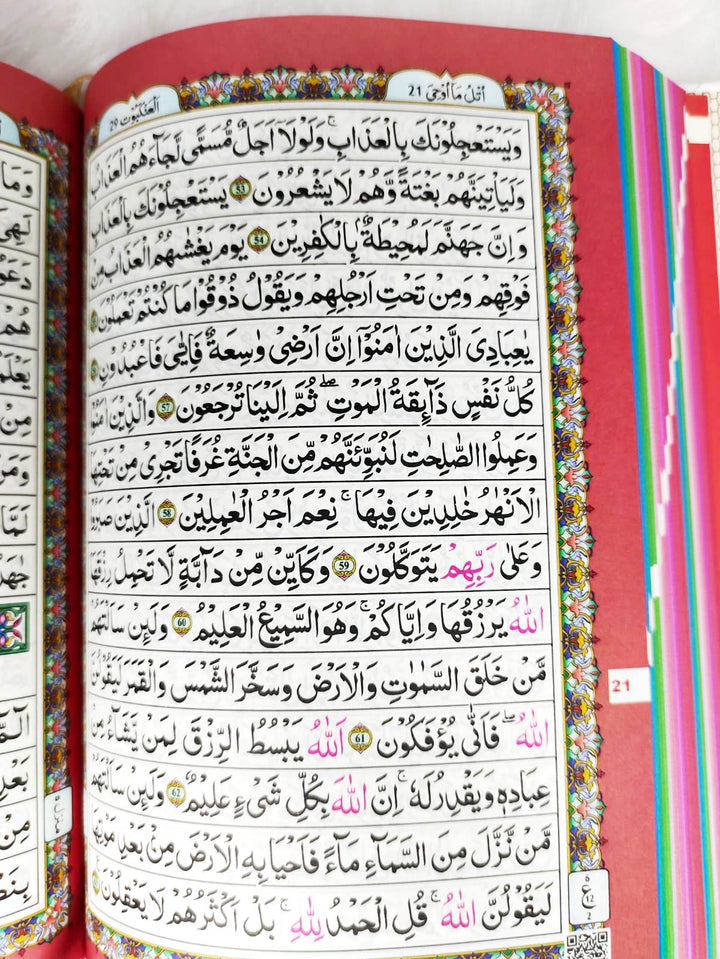 اتل ما اوحی 21
العنكبوت 29
وَيَسْتَعْجِلُوْنَكَ بِالْعَذَابِ ۚ وَلَوْلَاۤ اَجَلٌ مُّسَمًّى لَّجَآءَهُمُ الْعَذَابُ
وَلَيَاْتِيَنَّهُمْ بَغْتَةً وَّهُمْ لَا يَشْعُرُوْنَ 53 يَسْتَعْجِلُوْنَكَ بِالْعَذَابِ
وَاِنَّ جَهَنَّمَ لَمُحِيْطَةٌۢ بِالْكٰفِرِيْنَ 54 يَوْمَ يَغْشٰىهُمُ الْعَذَابُ مِنْ
فَوْقِهِمْ وَمِنْ تَحْتِ اَرْجُلِهِمْ وَيَقُوْلُ ذُوْقُوْا مَا كُنْتُمْ تَعْمَلُوْنَ
يٰعِبَادِىَ الَّذِيْنَ اٰمَنُوْۤا اِنَّ اَرْضِىْ وَاسِعَةٌ فَاِيَّاىَ فَاعْبُدُوْنِ
كُلُّ نَفْسٍ ذَآئِقَةُ الْمَوْتِ ۖ ثُمَّ اِلَيْنَا تُرْجَعُوْنَ 57 وَالَّذِيْنَ اٰمَنُوْا
وَعَمِلُوا الصّٰلِحٰتِ لَنُبَوِّئَنَّهُمْ مِّنَ الْجَنَّةِ غُرَفًا تَجْرِىْ مِنْ تَحْتِهَا
الْاَنْهٰرُ خٰلِدِيْنَ فِيْهَا ۚ نِعْمَ اَجْرُ الْعٰمِلِيْنَ 58 الَّذِيْنَ صَبَرُوْا
وَعَلٰى رَبِّهِمْ يَتَوَكَّلُوْنَ 59 وَكَاَيِّنْ مِّنْ دَآبَّةٍ لَّا تَحْمِلُ رِزْقَهَا
اللّٰهُ يَرْزُقُهَا وَاِيَّاكُمْ ۚ وَهُوَ السَّمِيْعُ الْعَلِيْمُ 60 وَلَئِنْ سَاَلْتَهُمْ
مَّنْ خَلَقَ السَّمٰوٰتِ وَالْاَرْضَ وَسَخَّرَ الشَّمْسَ وَالْقَمَرَ لَيَقُوْلُنَّ
اللّٰهُ ۖ فَاَنّٰى يُؤْفَكُوْنَ 61 اَللّٰهُ يَبْسُطُ الرِّزْقَ لِمَنْ يَّشَآءُ مِنْ
عِبَادِهٖ وَيَقْدِرُ لَهٗ ۚ اِنَّ اللّٰهَ بِكُلِّ شَىْءٍ عَلِيْمٌ 62 وَلَئِنْ سَاَلْتَهُمْ
مَّنْ نَّزَّلَ مِنَ السَّمَآءِ مَآءً فَاَحْيَا بِهِ الْاَرْضَ مِنْۢ بَعْدِ مَوْتِهَا
لَيَقُوْلُنَّ اللّٰهُ ۚ قُلِ الْحَمْدُ لِلّٰهِ ۚ بَلْ اَكْثَرُهُمْ لَا يَعْقِلُوْنَ
21
6
ع
12
2